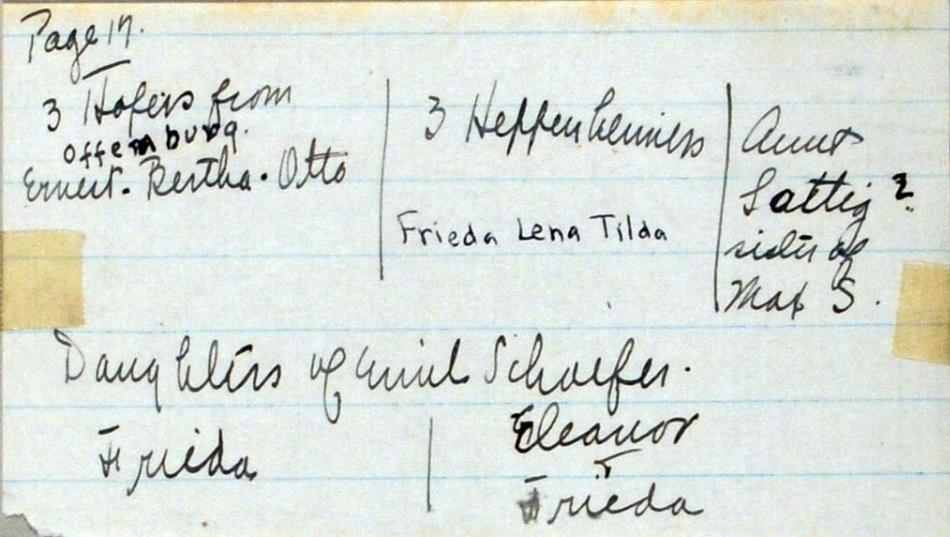 Page 17.
3 Hofers from
Offenburg.
Ernest. Bertha. Otto
3 Heppenheimers
Frieda Lena Tilda
Aunt
Sattig ?
sister of
Max S.
Daughters of Emil Schaefer.
Frieda
Eleanor
+
Frieda